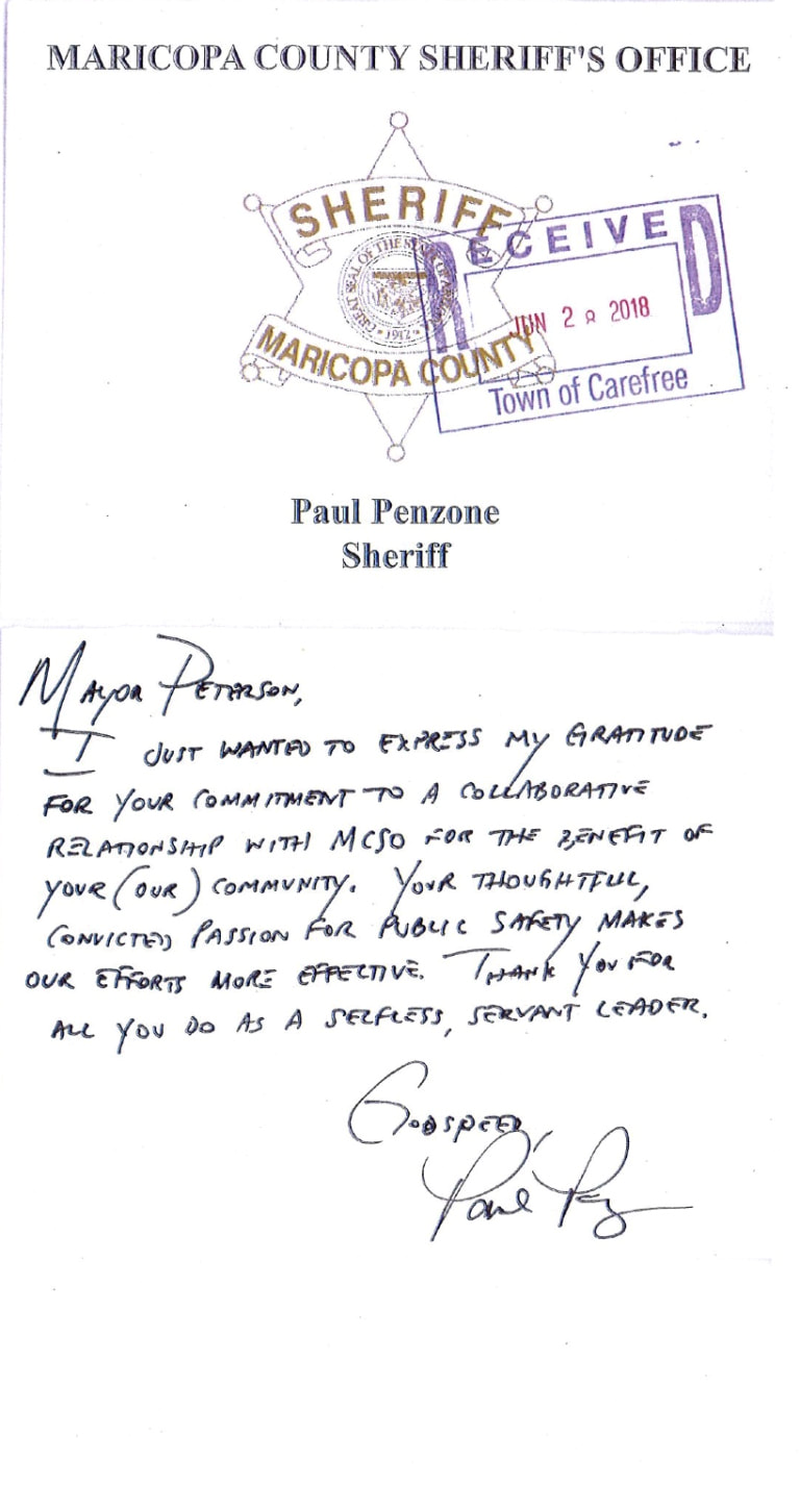 MARICOPA COUNTY SHERIFF'S OFFICE
SHERIFF
GREAT SEAL OF THE STATE OF ARIZONA
1912
MARICOPA COUNTY
RECEIVED
JUN 28 2018
Town of Carefree
Paul Penzone
Sheriff
MAYOR PETERSON,
I JUST WANTED TO EXPRESS MY GRATITUDE
FOR YOUR COMMITMENT TO A COLLABORATIVE
RELATIONSHIP WITH MCSO FOR THE BENEFIT OF
YOUR (OUR) COMMUNITY. YOUR THOUGHTFUL,
CONVICTED PASSION FOR PUBLIC SAFETY MAKES
OUR EFFORTS MORE EFFECTIVE. THANK YOU FOR
ALL YOU DO AS A SELFLESS, SERVANT LEADER.
GODSPEED,
Paul Penzone